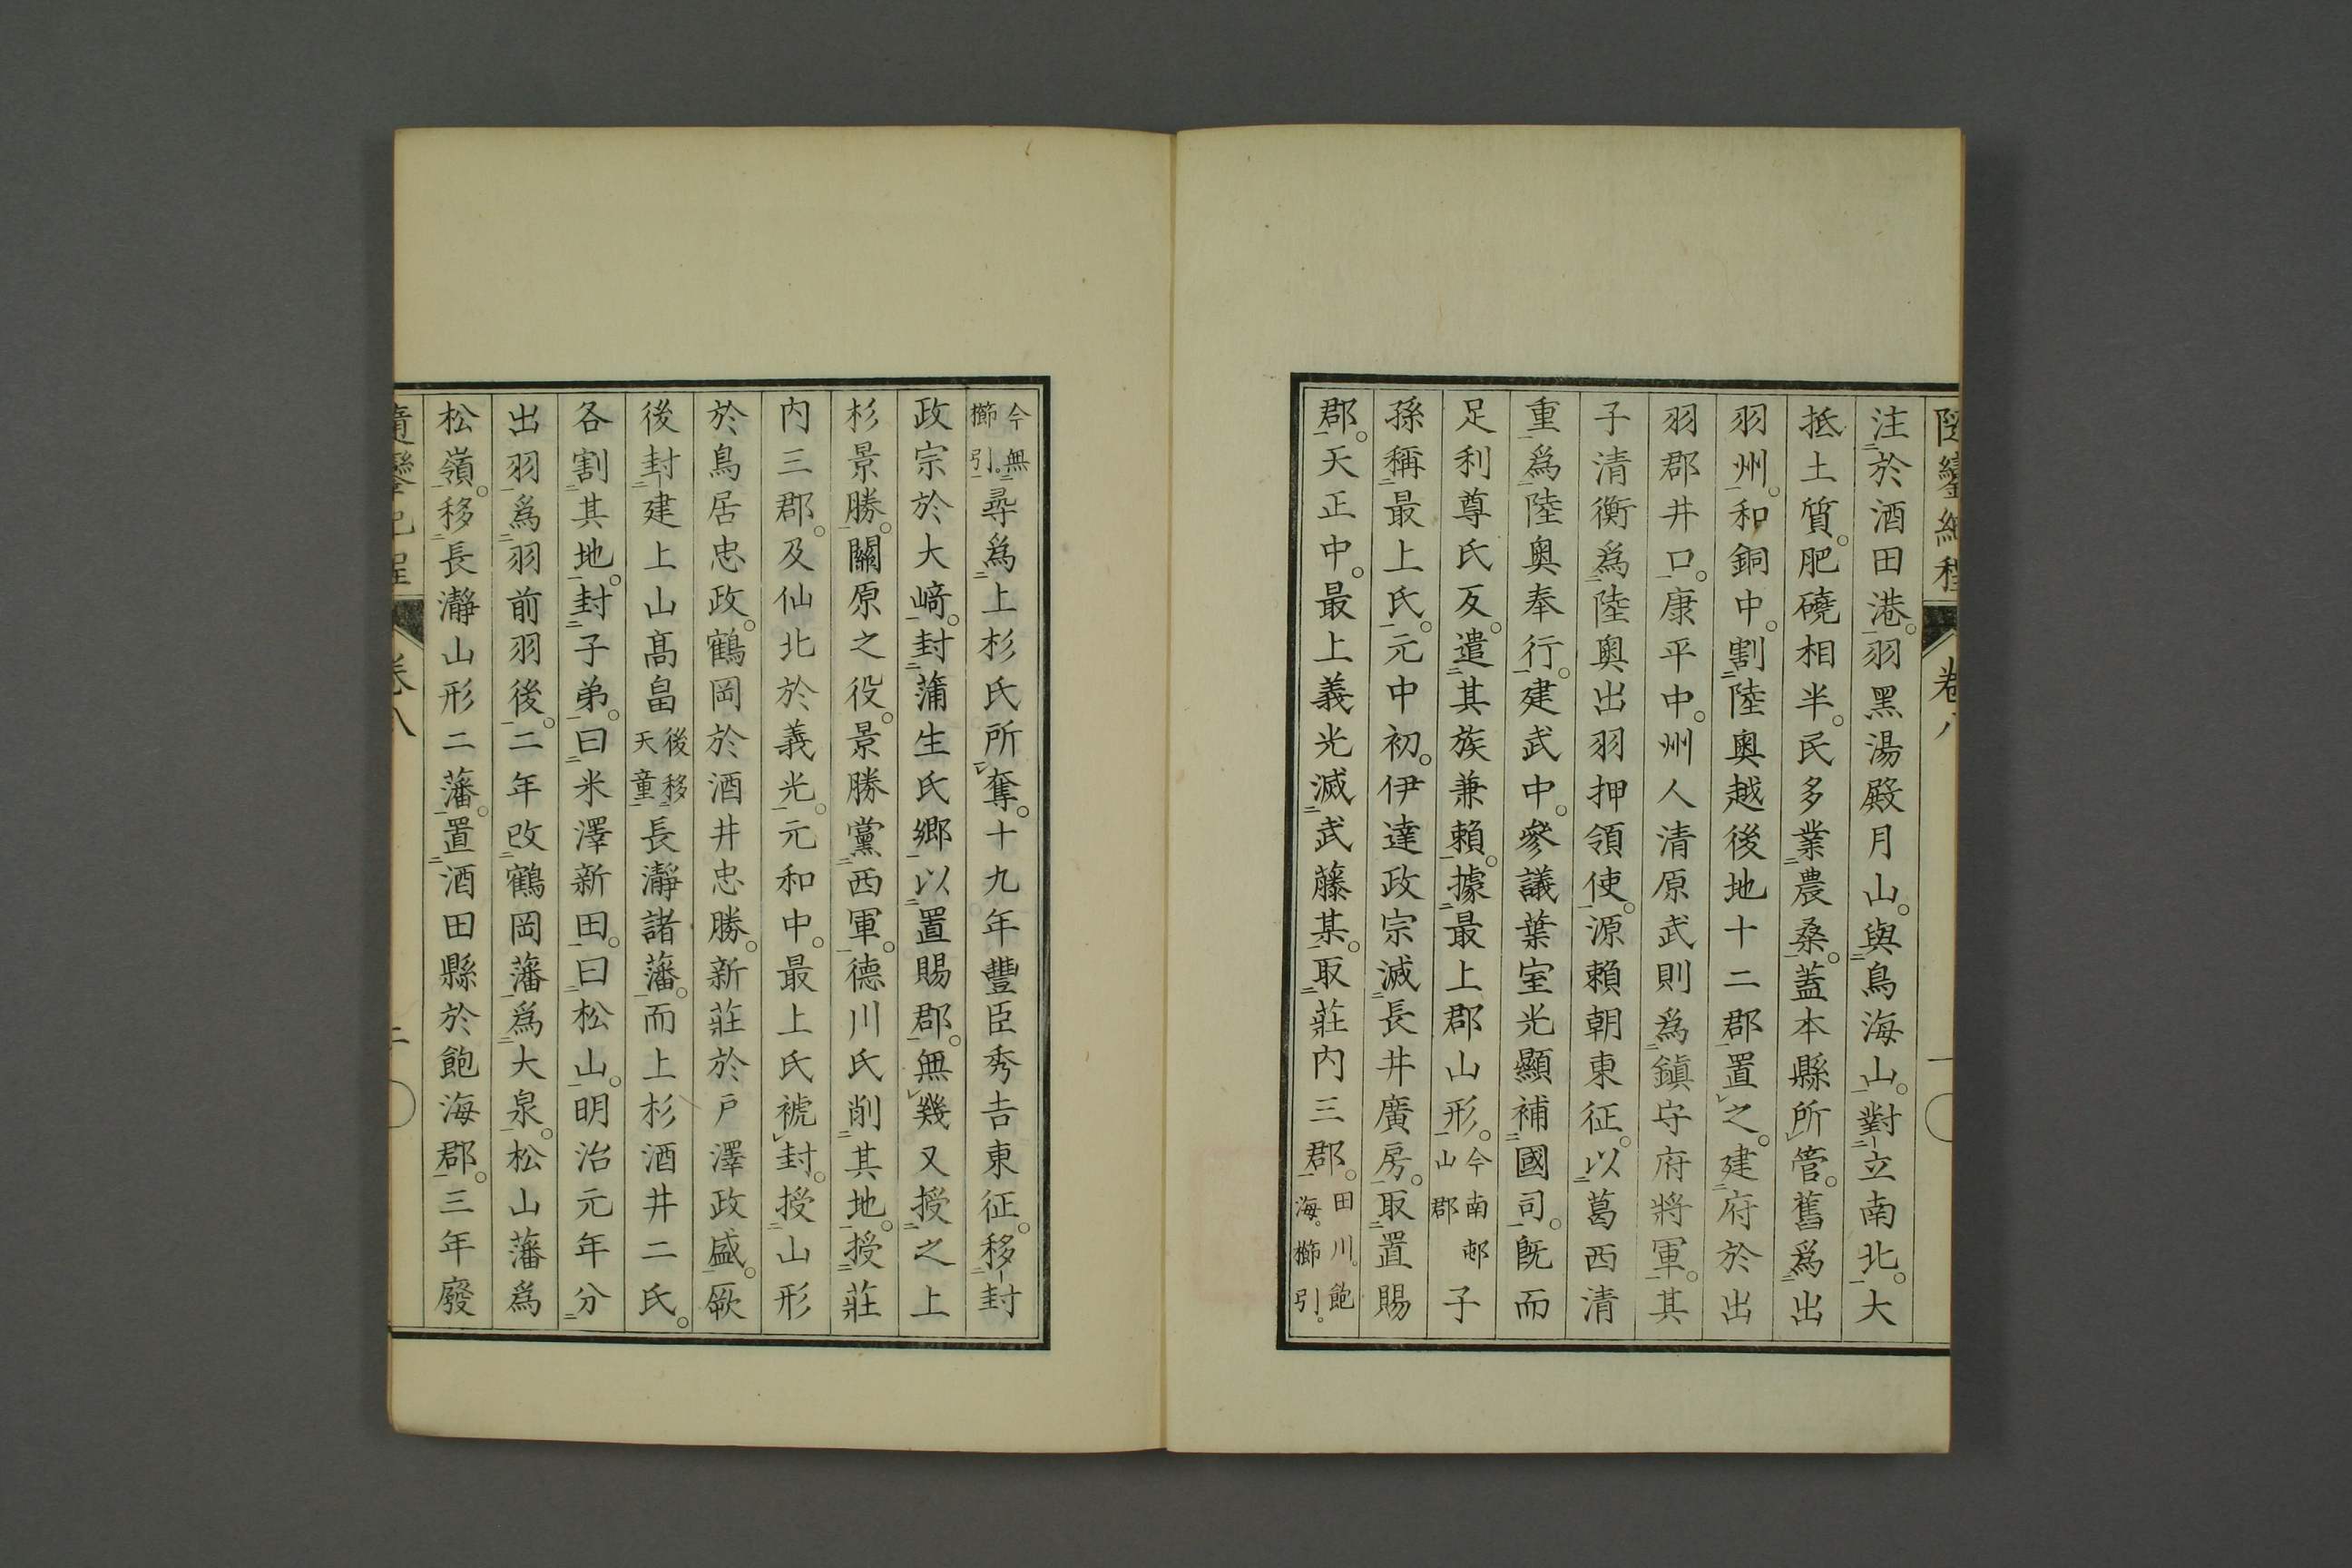 注於酒田港。羽黑湯殿月山。與鳥海山。對立南北。大
抵土質。肥磽相半。民多業農桑。蓋本縣所管。舊爲出
羽州。和銅中。割陸奧越後地十二郡置之。建府於出
羽郡井口。康平中。州人清原武則爲鎭守府將軍。其
子清衡爲陸奧出羽押領使。源賴朝東征。以葛西清
重爲陸奧奉行。建武中。參議葉室光顯補國司。旣而
足利尊氏反。遣其族兼賴。據最上郡山形。今南邨山郡子
孫稱最上氏。元中初。伊達政宗滅長井廣房。取置賜
郡。天正中。最上義光滅武藤某。取莊内三郡。田川。飽海。櫛引。
今無櫛引。尋爲上杉氏所奪。十九年豐臣秀吉東征。移封
政宗於大﨑。封蒲生氏鄉以置賜郡。無幾又授之上
杉景勝。關原之役。景勝黨西軍。德川氏削其地。授莊
内三郡。及仙北於義光。元和中。最上氏褫封。授山形
於鳥居忠政。鶴岡於酒井忠勝。新莊於戶澤政盛。厥
後封建上山高畠後移天童長瀞諸藩。而上杉酒井二氏。
各割其地。封子弟。曰米澤新田。曰松山。明治元年分
出羽爲羽前羽後。二年改鶴岡藩爲大泉。松山藩爲
松嶺。移長瀞山形二藩。置酒田縣於飽海郡。三年廢
卷八